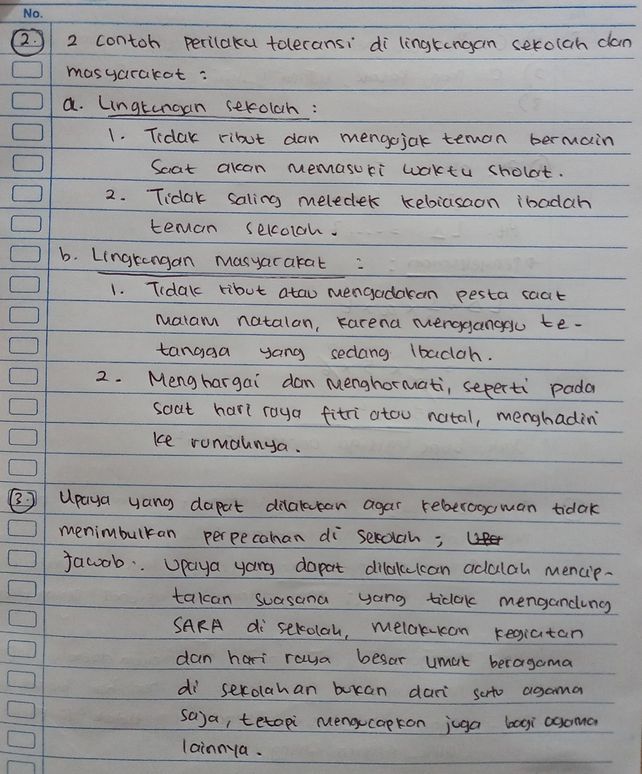 No.
2. 2 contoh perilaku toleransi di lingkungan sekolah dan
masyarakat :
a. Lingkungan sekolah :
1. Tidak ribut dan mengajak teman bermain
Saat akan memasuki waktu sholat.
2. Tidak saling meledek kebiasaan ibadah
teman sekolah.
b. Lingkungan Masyarakat :
1. Tidak ribut atau mengadakan pesta saat
malam natalan, karena mengganggu te-
tangga yang sedang Ibadah.
2. Menghargai dan menghormati, seperti pada
saat hari raya fitri atau natal, menghadiri
ke rumahnya.
3. Upaya yang dapat dilakukan agar keberagaman tidak
menimbulkan perpecahan di sekolah ;
Jawab : Upaya yang dapat dilakukan adalah mencip-
takan suasana yang tidak mengandung
SARA di sekolah, melakukan kegiatan
dan hari raya besar umat beragama
di sekolahan bukan dari satu agama
saja, tetapi mengucapkan juga bagi agama
lainnya.